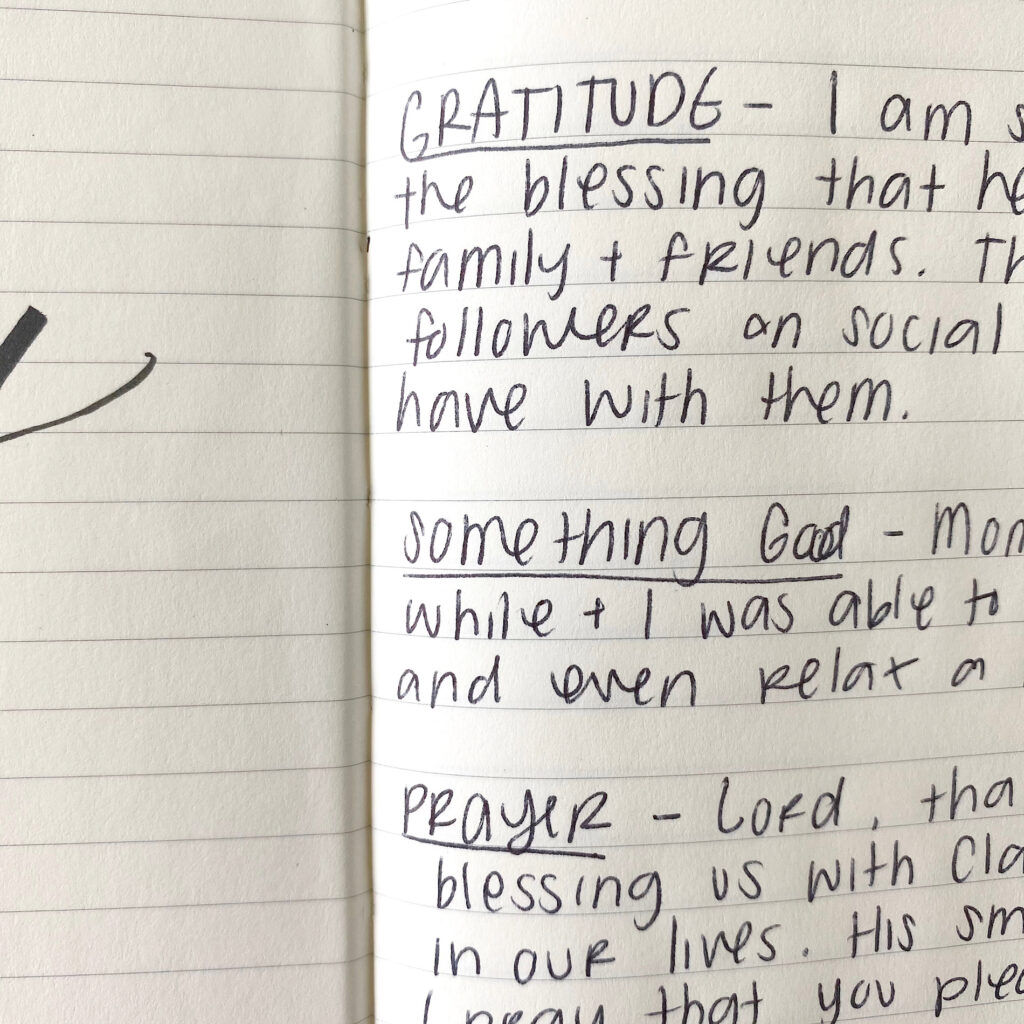 GRATITUDE - I am s
the blessing that he
family + friends. Th
followers on social
have with them.
something Good - Mon
while + I was able to
and even relax a
PRAYER - Lord, tha
blessing us with Cla
in our lives. His sm
I pray that you plea